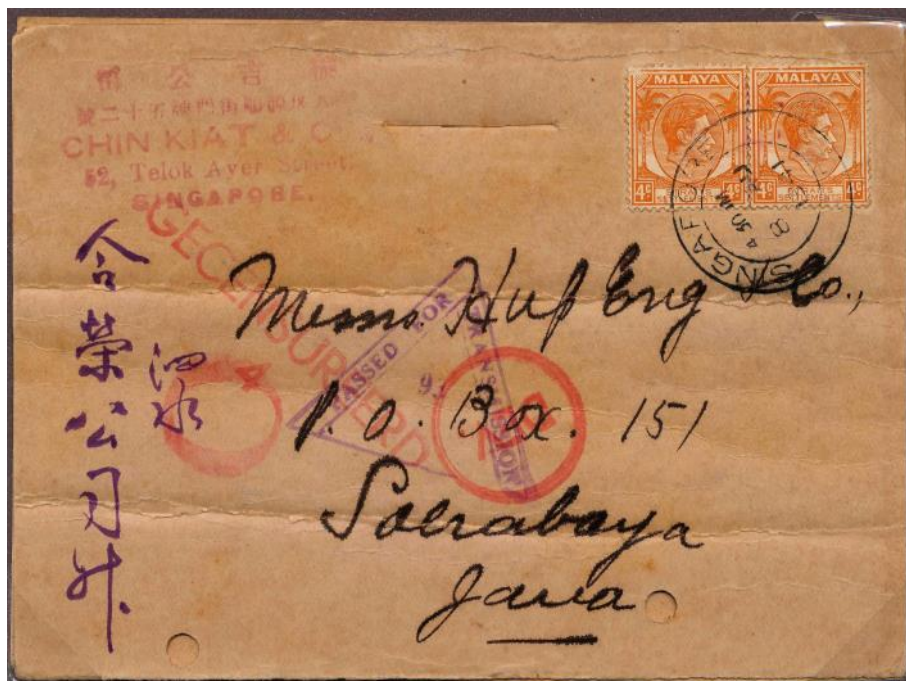 CHIN KIAT & CO
52, Telok Ayer Street,
SINGAPORE.
MALAYA
MALAYA
4c 4c
4c 4c
SINGAPORE
GECENSUREERD
PASSED FOR TRANSMISSION
Messrs. Hup Eng Co.,
P.O. Box. 151
Soerabaya
Java
泗水
合榮公司